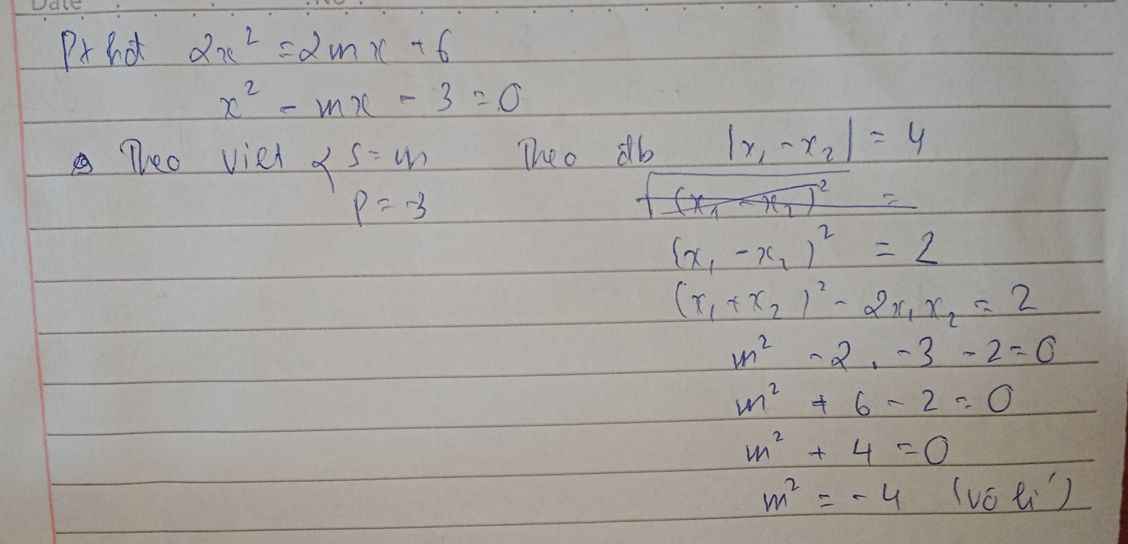 Date No :
Pt hđt 2x² = 2mx + 6
x² - mx - 3 = 0
Theo viet { S = m Theo đb |x₁ - x₂| = 4
P = -3 √(x₁ - x₂)² =
(x₁ - x₂)² = 2
(x₁ + x₂)² - 2x₁x₂ = 2
m² - 2 . -3 - 2 = 0
m² + 6 - 2 = 0
m² + 4 = 0
m² = -4 (vô lí)